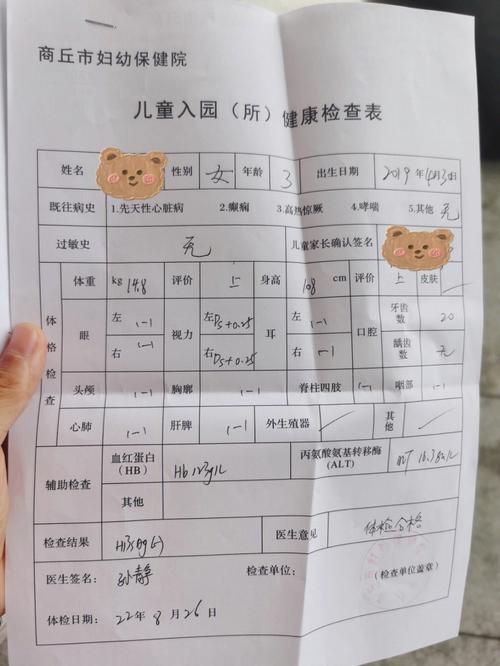 商丘市妇幼保健院
儿童入园（所）健康检查表
姓名 性别 女 年龄 3 出生日期 2019年4月30日
既往病史 1.先天性心脏病 2.癫痫 3.高热惊厥 4.哮喘 5.其他 无
过敏史 无 儿童家长确认签名
体格检查
体重 kg 14.8 评价 上 身高 108 cm 评价 上 皮肤
眼 左 (-) 右 (-) 视力 左 Ds+0.25 右 Ds+0.25 耳 左 (-) 右 (-) 口腔 牙齿数 20 龋齿数 无
头颅 (-) 胸廓 (-) 脊柱四肢 (-) 咽部 (-)
心肺 (-) 肝脾 (-) 外生殖器 其他
辅助检查
血红蛋白（HB） Hb 113g/L 丙氨酸氨基转移酶（ALT）
其他
检查结果 医生意见 体检合格
医生签名： 孙静 检查单位： （检查单位盖章）
体检日期： 22年 8月 26日